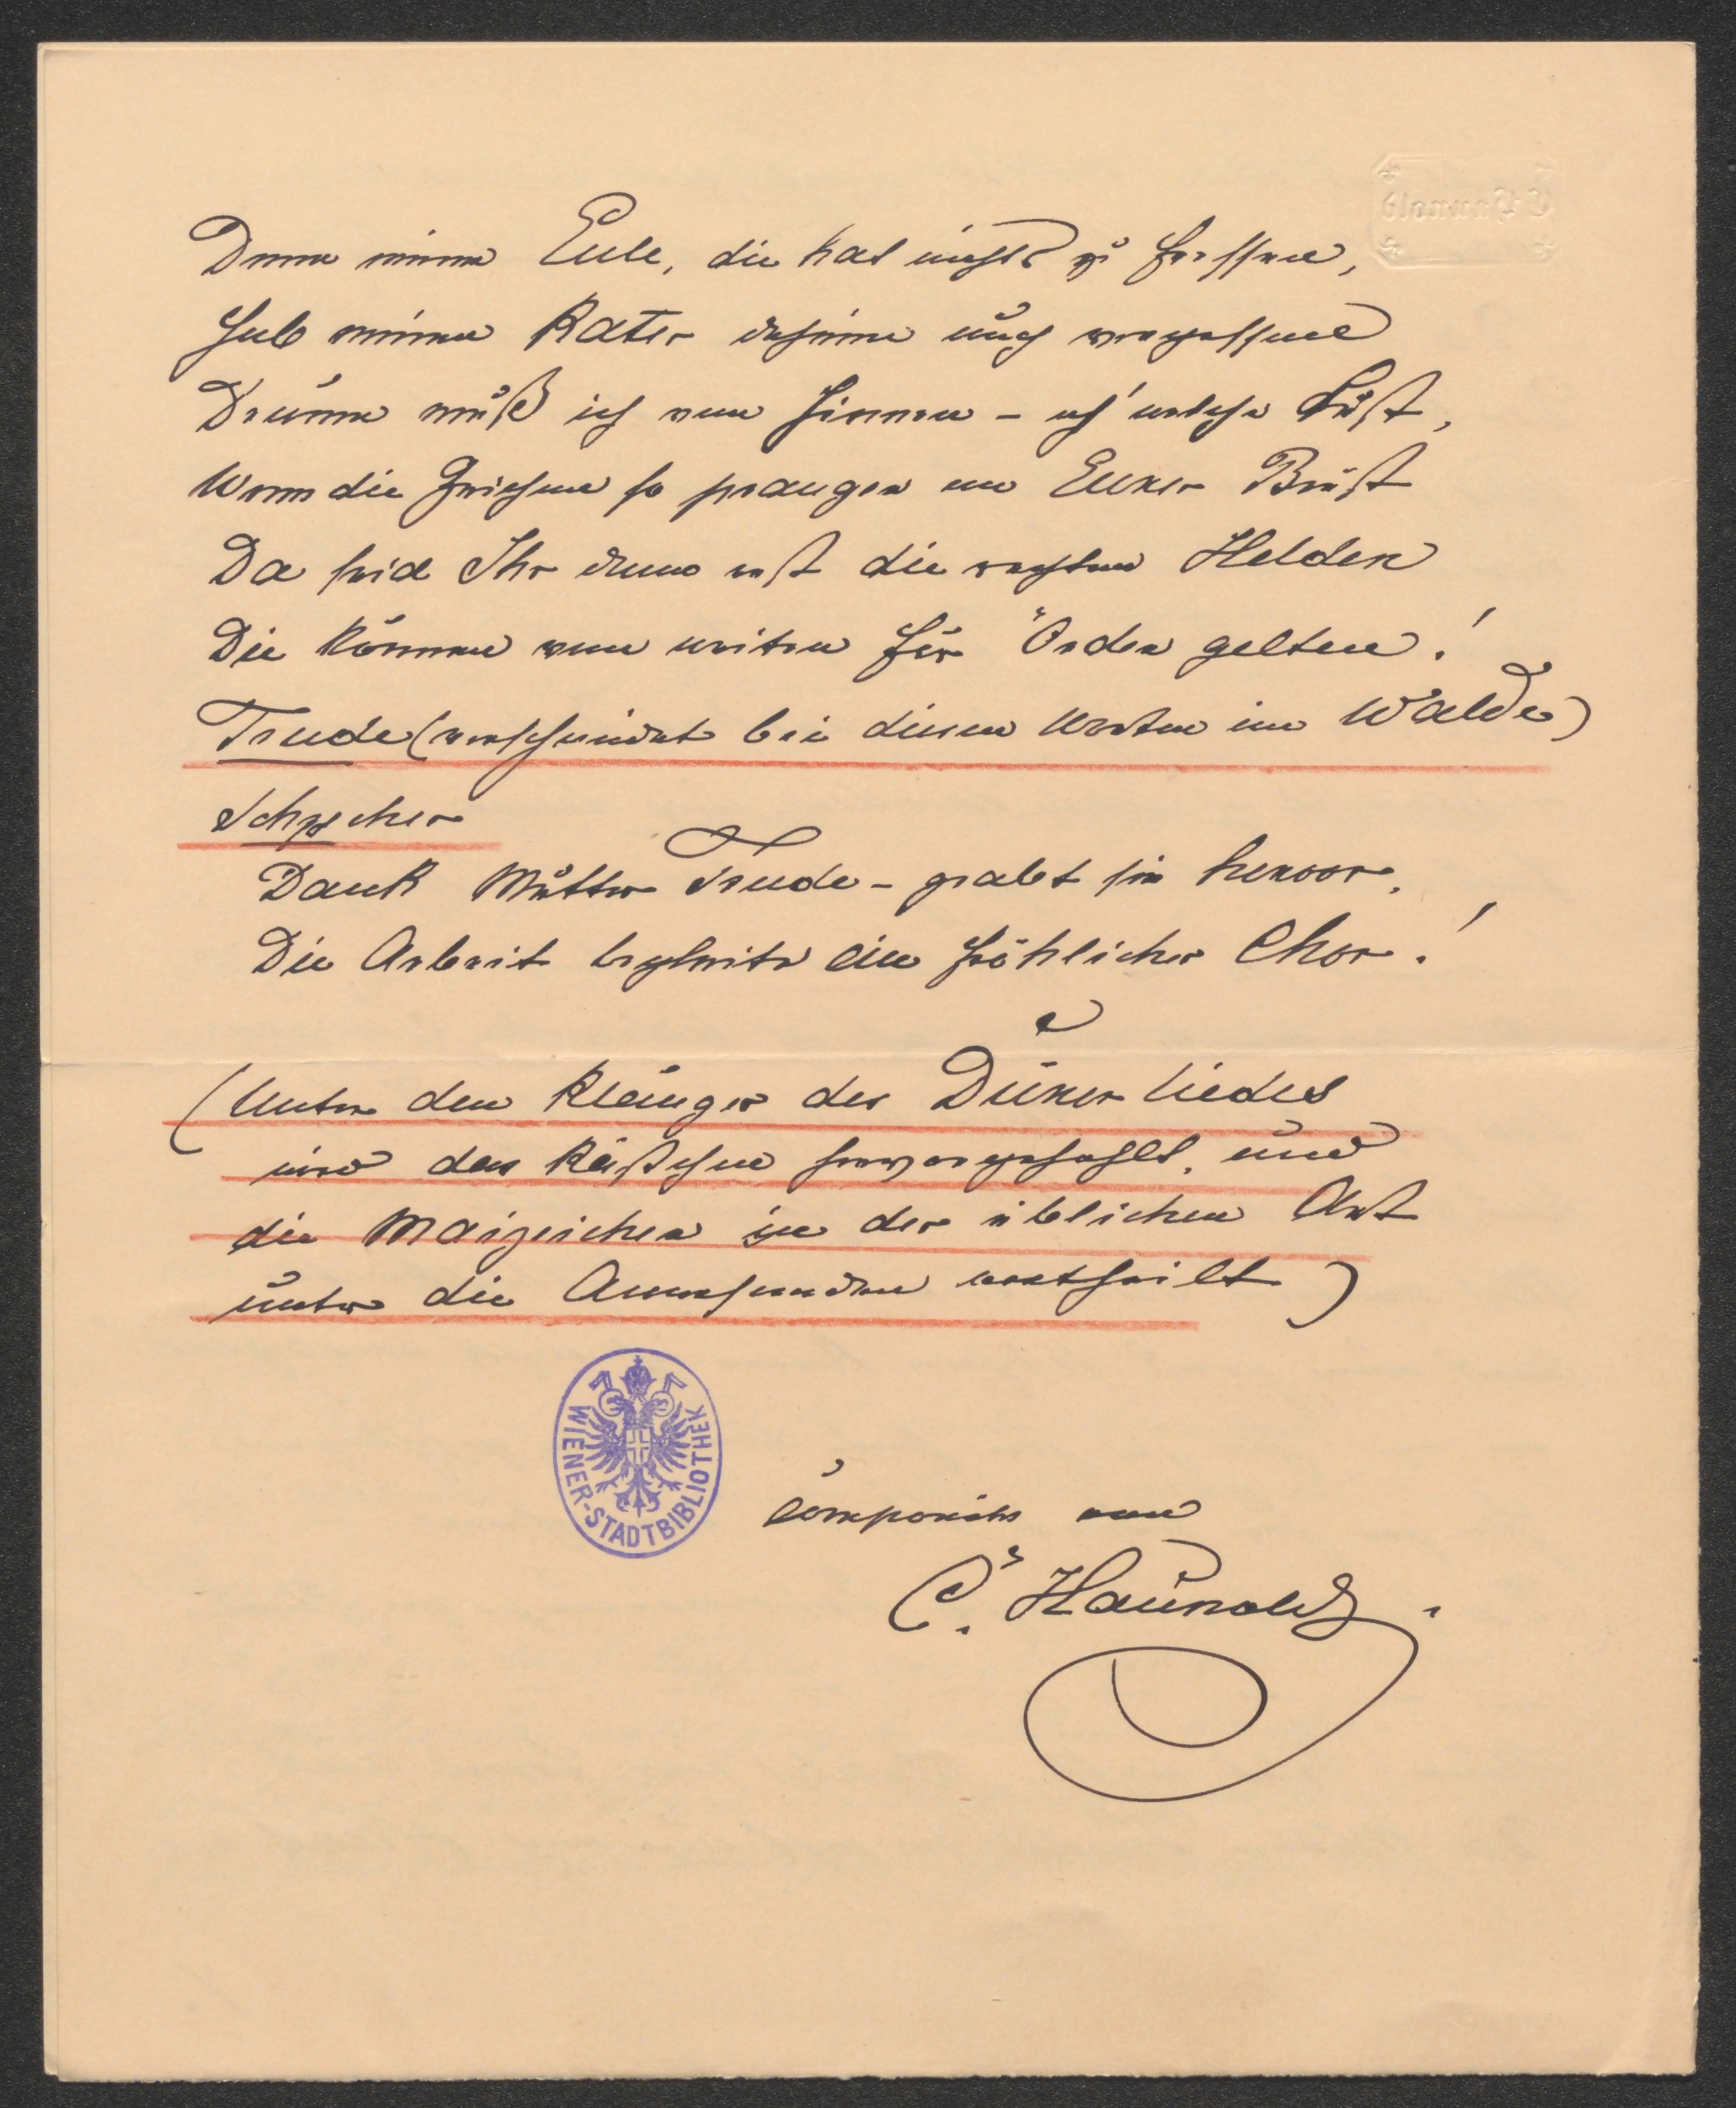 Denn meine Eule, die hat nichts zu fressen,
Hab meinen Kater daheim auch vergessen
Drum muß ich von hinnen – ach welche Lust,
Wenn die Zeichen so prangen an Eurer Brust
Da seid Ihr dann erst die rechten Helden
Die können von weiten für Orden gelten!
Trude (verschwindet bei diesen Worten im Walde)
Dank Mutter Trude – grabt sie hervor,
Die Arbeit begleite ein fröhlicher Chor!
(Unter den Klängen des Dürer Liedes
wird das Kästchen hervorgeholt, und
die Maizeichen in der üblichen Art
unter die Anwesenden vertheilt)
WIENER-STADTBIBLIOTHEK
componirt von
C. Haunold.
C Haunold